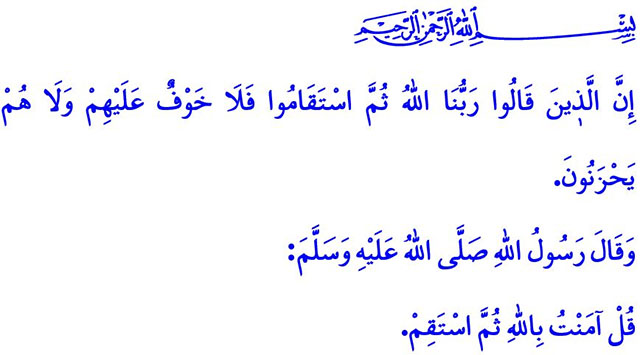 بِسْمِ اللهِ الرَّحْمٰنِ الرَّحِيمِ
إِنَّ الَّذِينَ قَالُوا رَبُّنَا اللهُ ثُمَّ اسْتَقَامُوا فَلَا خَوْفٌ عَلَيْهِمْ وَلَا هُمْ
يَحْزَنُونَ.
وَقَالَ رَسُولُ اللهِ صَلَّى اللهُ عَلَيْهِ وَسَلَّمَ:
قُلْ آمَنْتُ بِاللهِ ثُمَّ اسْتَقِمْ.